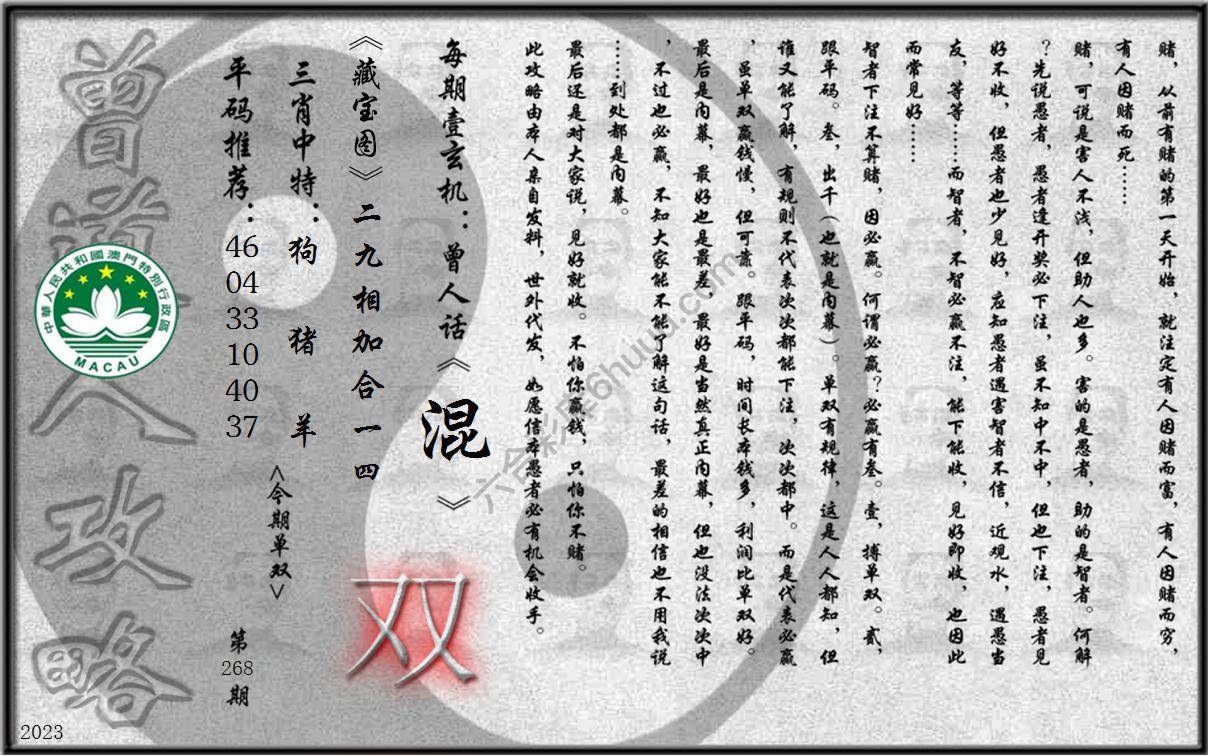 赌，从前有赌的第一天开始，就注定有人因赌而富，有人因赌而穷，
有人因赌而死……
赌，可说是害人不浅，但助人也多。害的是愚者，助的是智者。何解
？先说愚者，愚者逢开奖必下注，虽不知中不中，但也下注，愚者见
好不收，但愚者也少见好，应知愚者遇害智者不信，近观水，遇愚当
友，等等……而智者，不智必赢不注，能下能收，见好即收，也因此
而常见好……
智者下注不算赌，因必赢。何谓必赢？必赢有叁。壹，搏单双。贰，
跟平码。叁，出千（也就是内幕）。单双有规律，这是人人都知，但
谁又能了解，有规则不代表次次都能下注，次次都中。而是代表必赢
，虽单双赢钱慢，但可靠。跟平码，时间长本钱多，利润比单双好。
最后是内幕，最好也是最差，最好是当然真正内幕，但也没法次次中
，不过也必赢，不知大家能不能了解这句话，最差的相信也不用我说
……到处都是内幕。
最后还是对大家说，见好就收。不怕你赢钱，只怕你不赌。
此攻略由本人亲自发料，世外代发，如愿信本愚者必有机会收手。
每期壹玄机：曾人话《混》
《藏宝图》二九相加合一四
双
三肖中特：狗 猪 羊
<今期单双>
平码推荐：46 04 33 10 40 37
第268期
曾道人攻略
中華人民共和國澳門特別行政區
MACAU
六合彩库6huuu.com
2023